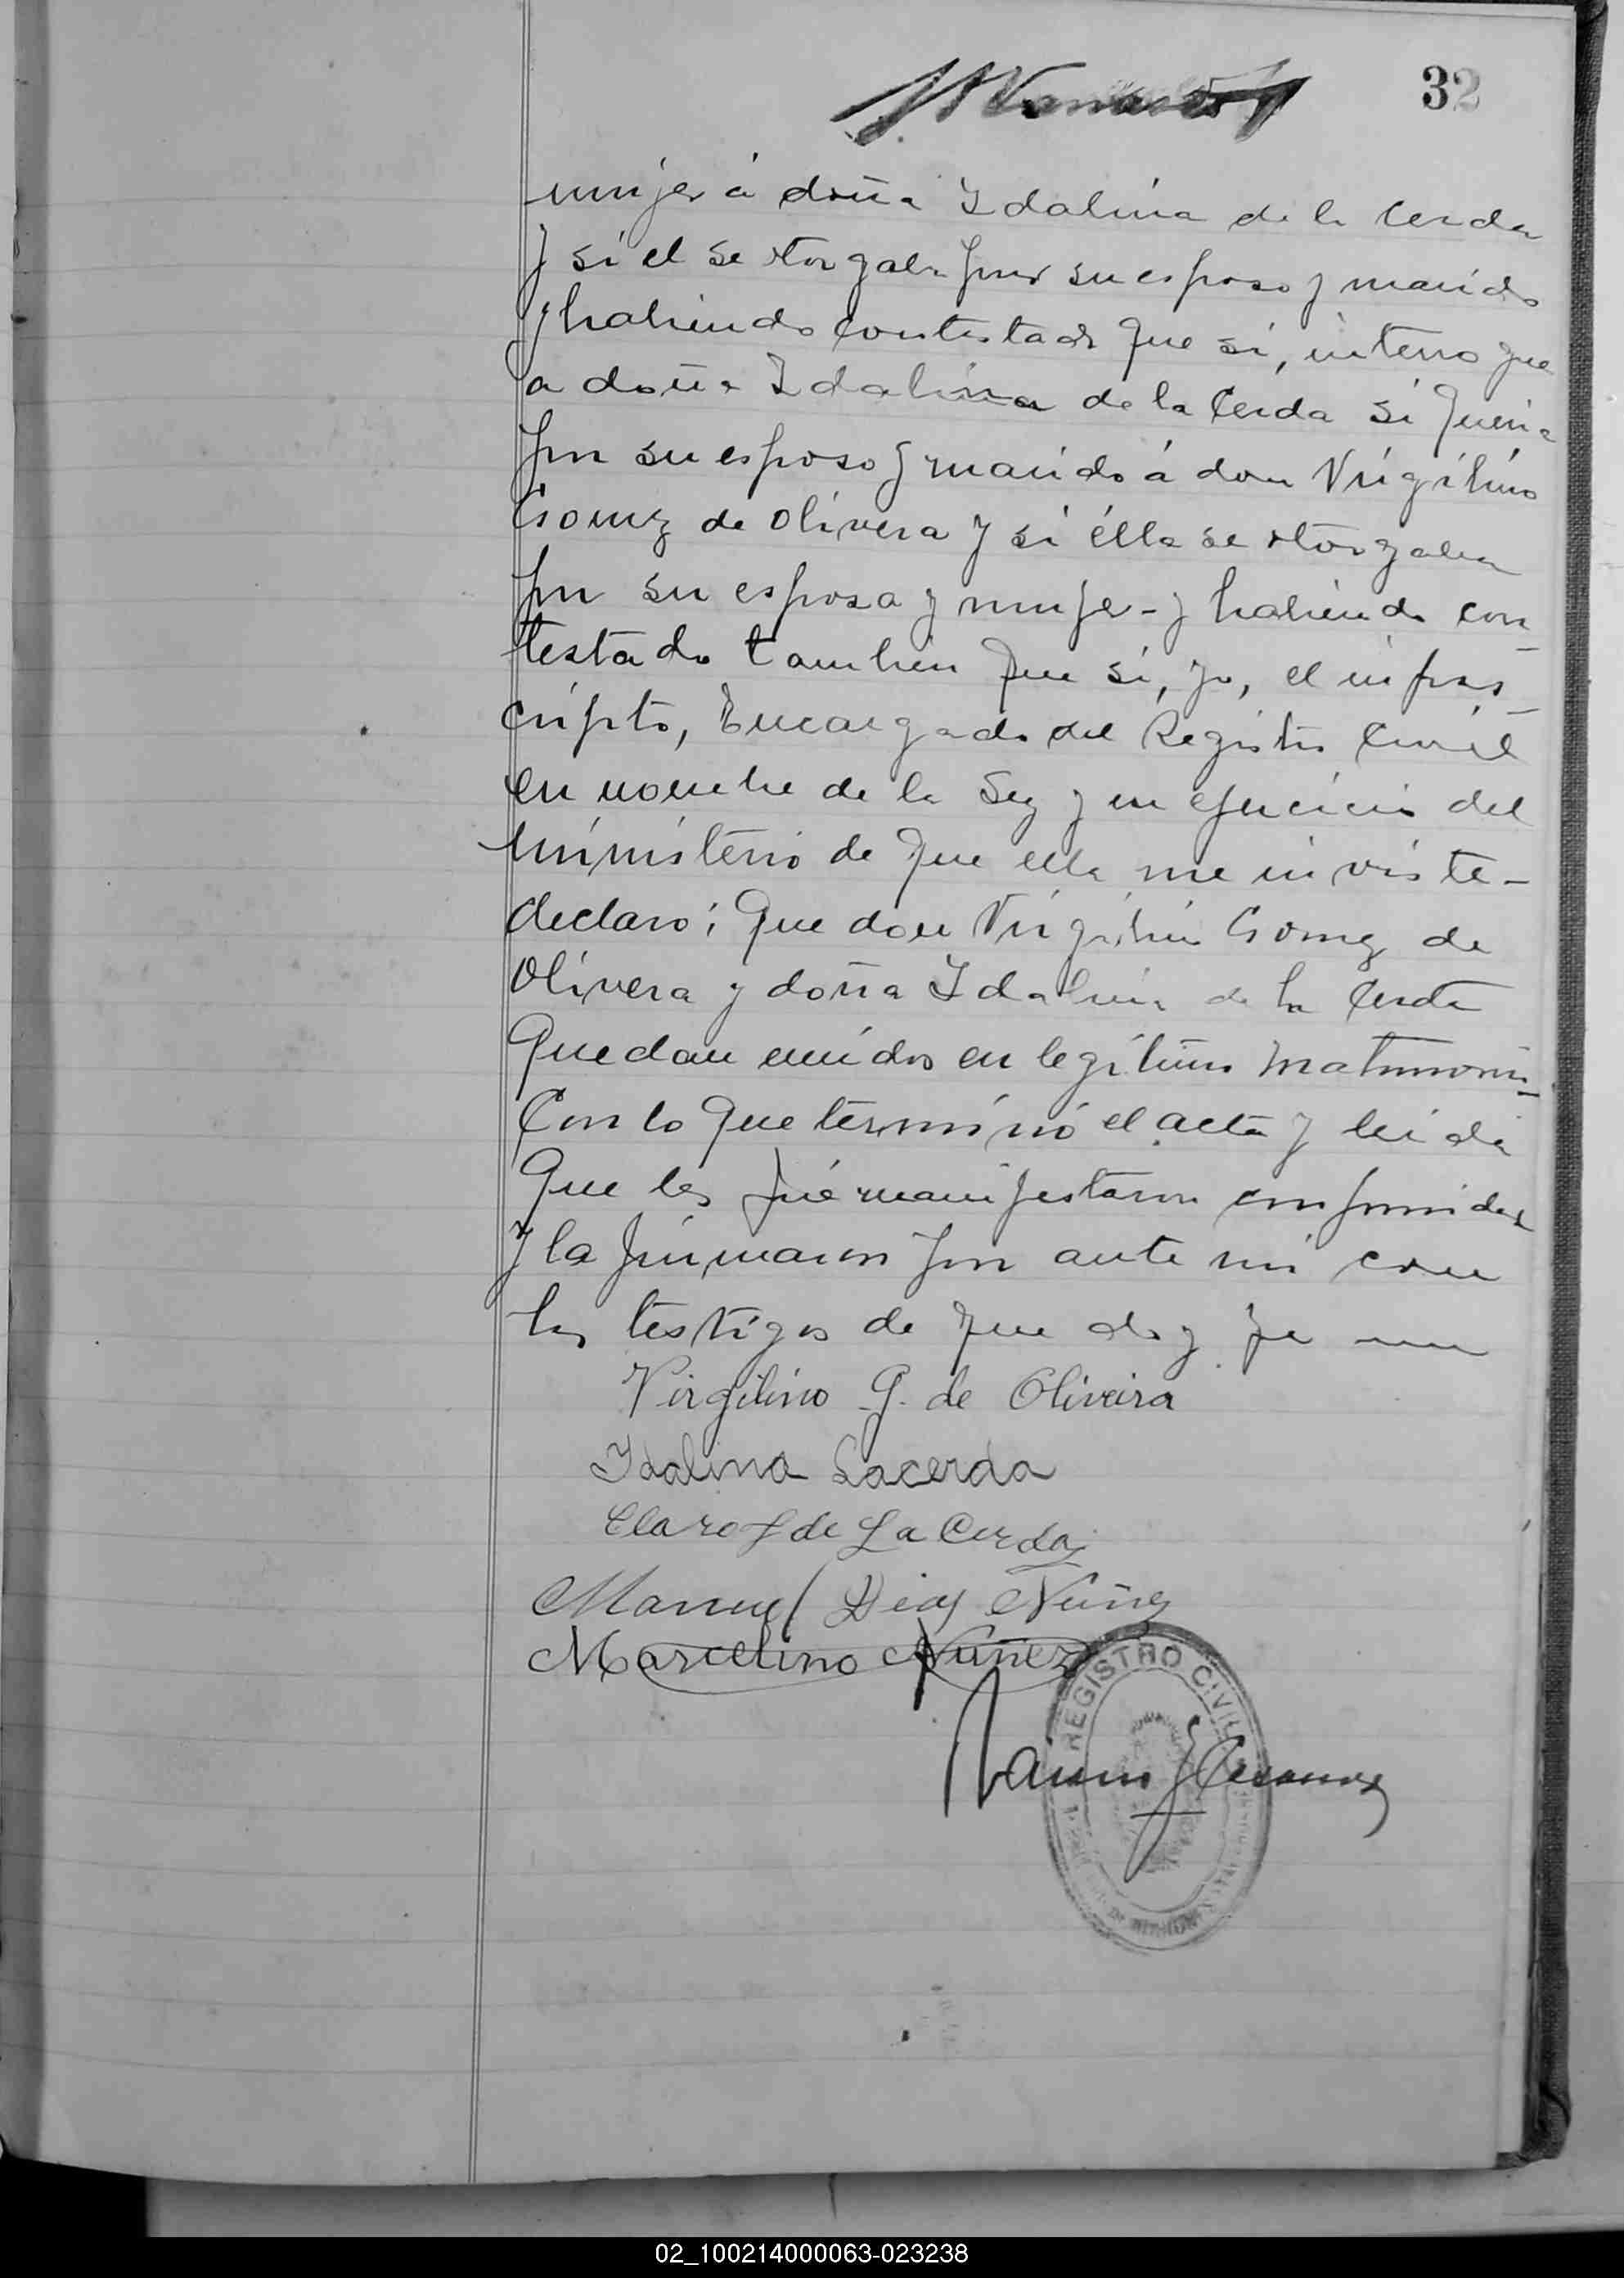 32
mujer á doña Idalina de la Cerda
y si el se otorgaba por su esposo y marido
y habiendo contestado que si, interrogue
a doña Idalina de la Cerda si queria
por su esposo y marido á don Virgilino
Gomez de Olivera y si élla se otorgaba
por su esposa y mujer y habiendo con
testado tambien que si, yo, el infras
cripto, Encargado del Registro Civil
en nombre de la Ley y en ejercicio del
ministerio de que ella me inviste-
declaro: Que don Virgilino Gomez de
Olivera y doña Idalina de la Cerda
quedan unidos en legitimo matrimonio
Con lo que terminó el acta y leida
que les fué manifestaron conformidad
y la firmaron por ante mi con
los testigos de que doy fe
Virgilino G. de Oliveira
Idalina Lacerda
Claro L de La Cerda
Manuel Diaz Nuñez
Marcelino Nuñez
REGISTRO CIVIL
02_100214000063-023238